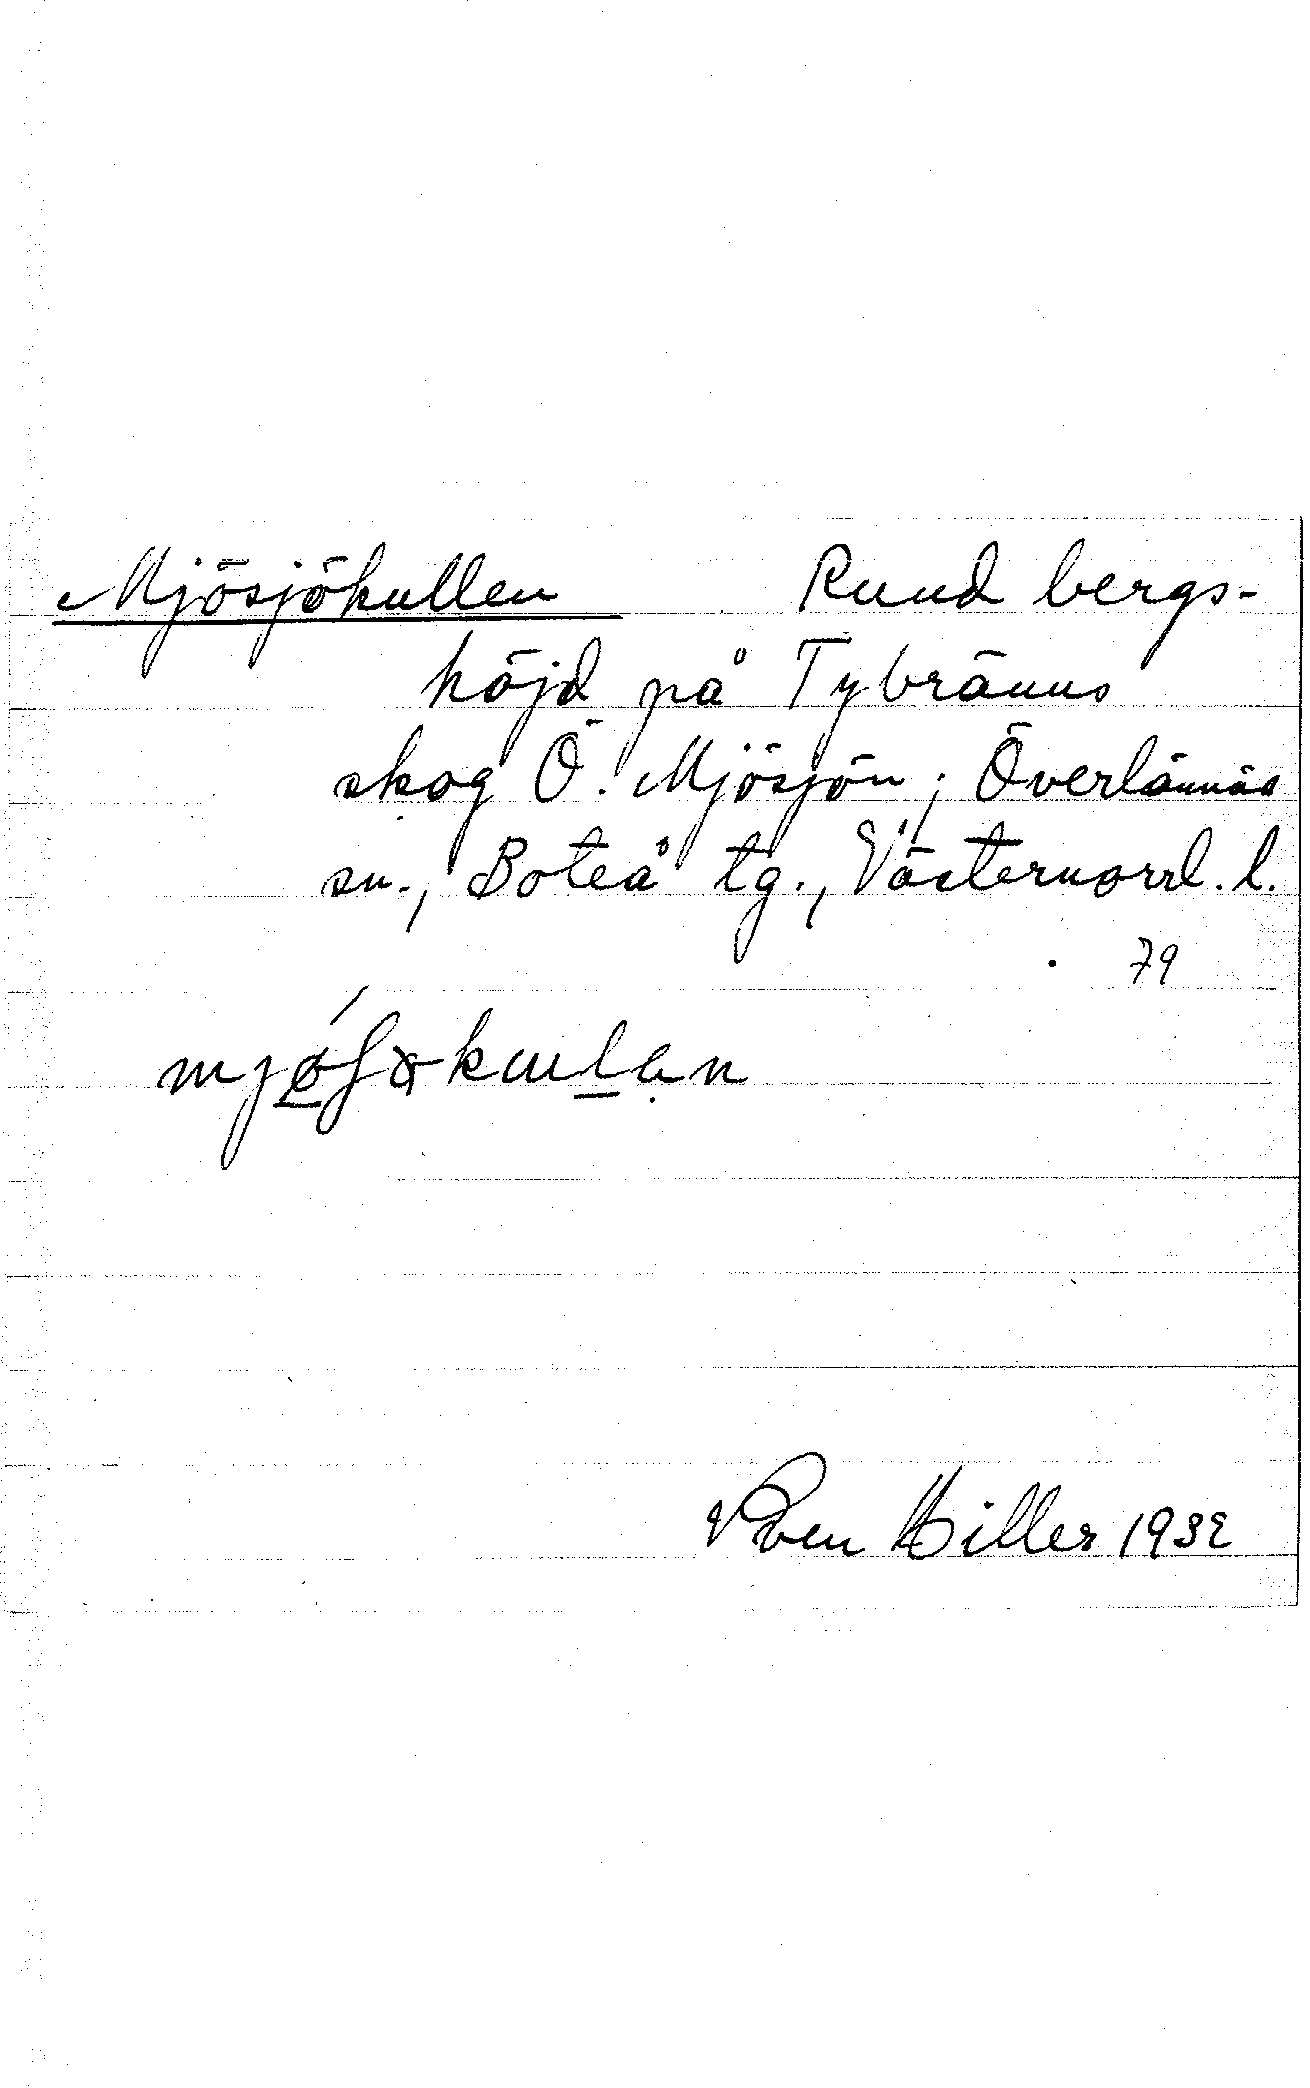 Mjösjökullen Rund bergs-
höjd på Tybränns
skog Ö. Mjösjön; Överlännäs
sn., Boteå tg., Västernorrl. l.
79
Sven Hiller 1932